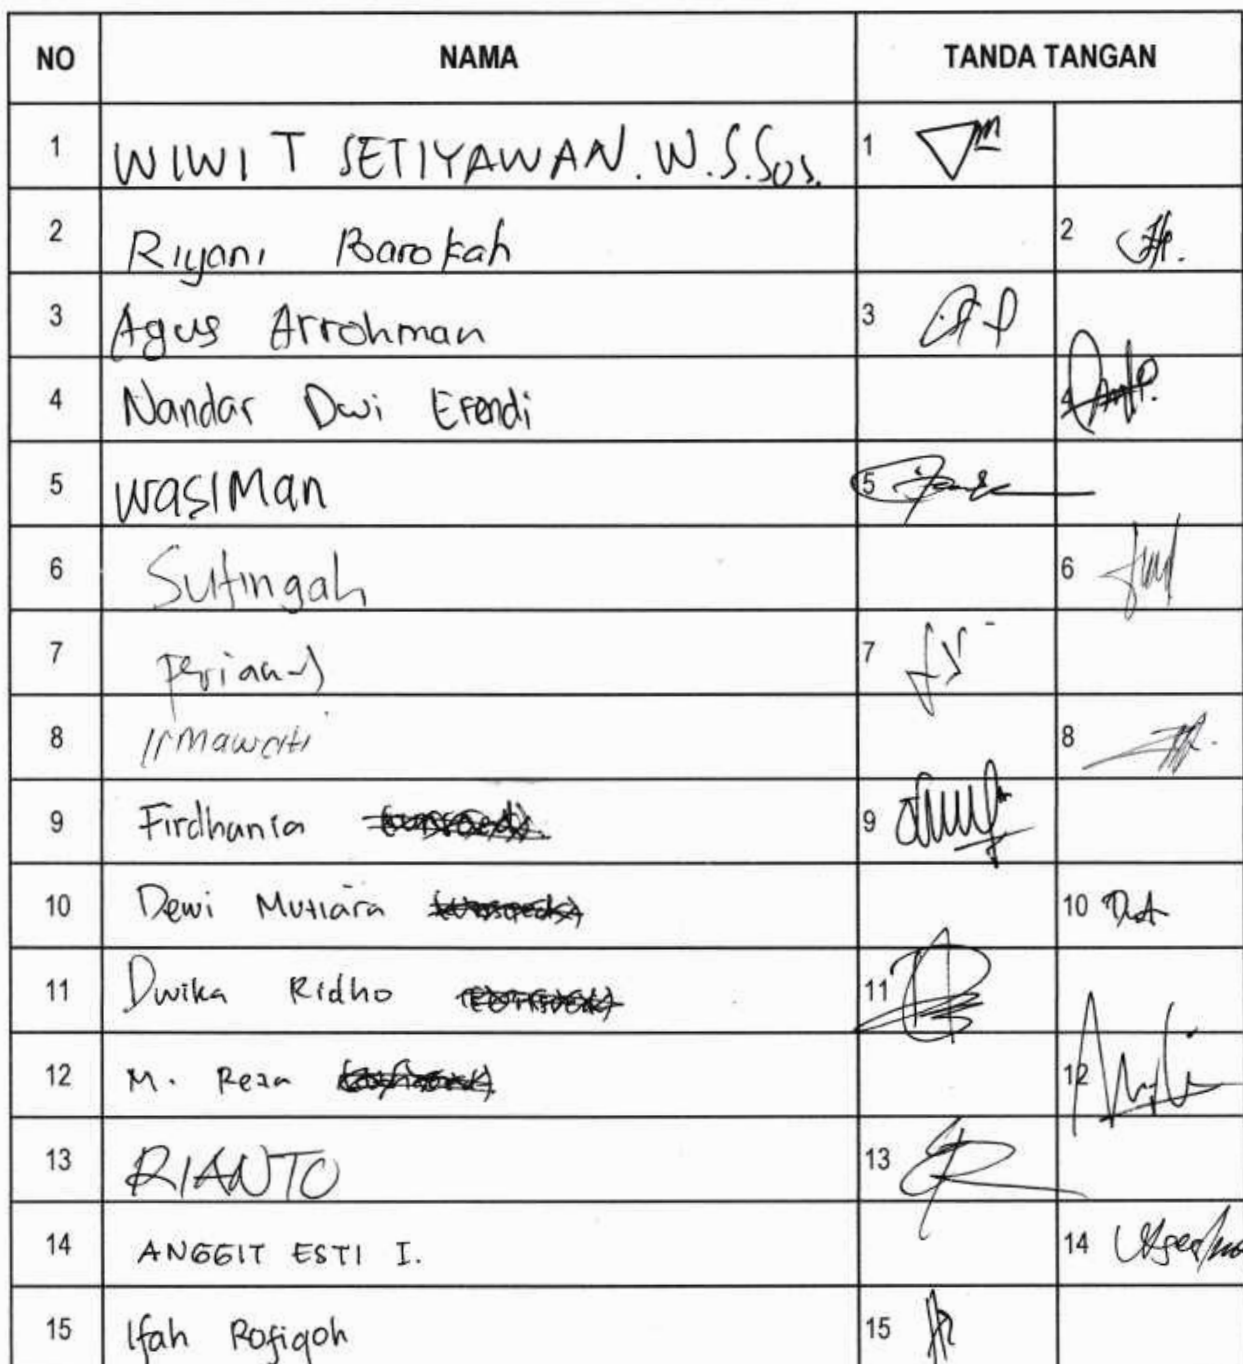 NO NAMA TANDA TANGAN
1 WIWIT SETIYAWAN. W. S.Sos. 1
2 Riyani Barokah 2
3 Agus Arrohman 3
4 Nandar Dwi Efendi 4
5 wasiMan 5
6 Sutingah 6
7 7
8 Irmawati 8
9 Firdhania 9
10 Dewi Mutiara 10
11 Dwika Ridho 11
12 M. Reza 12
13 RIANTO 13
14 ANGGIT ESTI I. 14
15 Ifah Rofiqoh 15